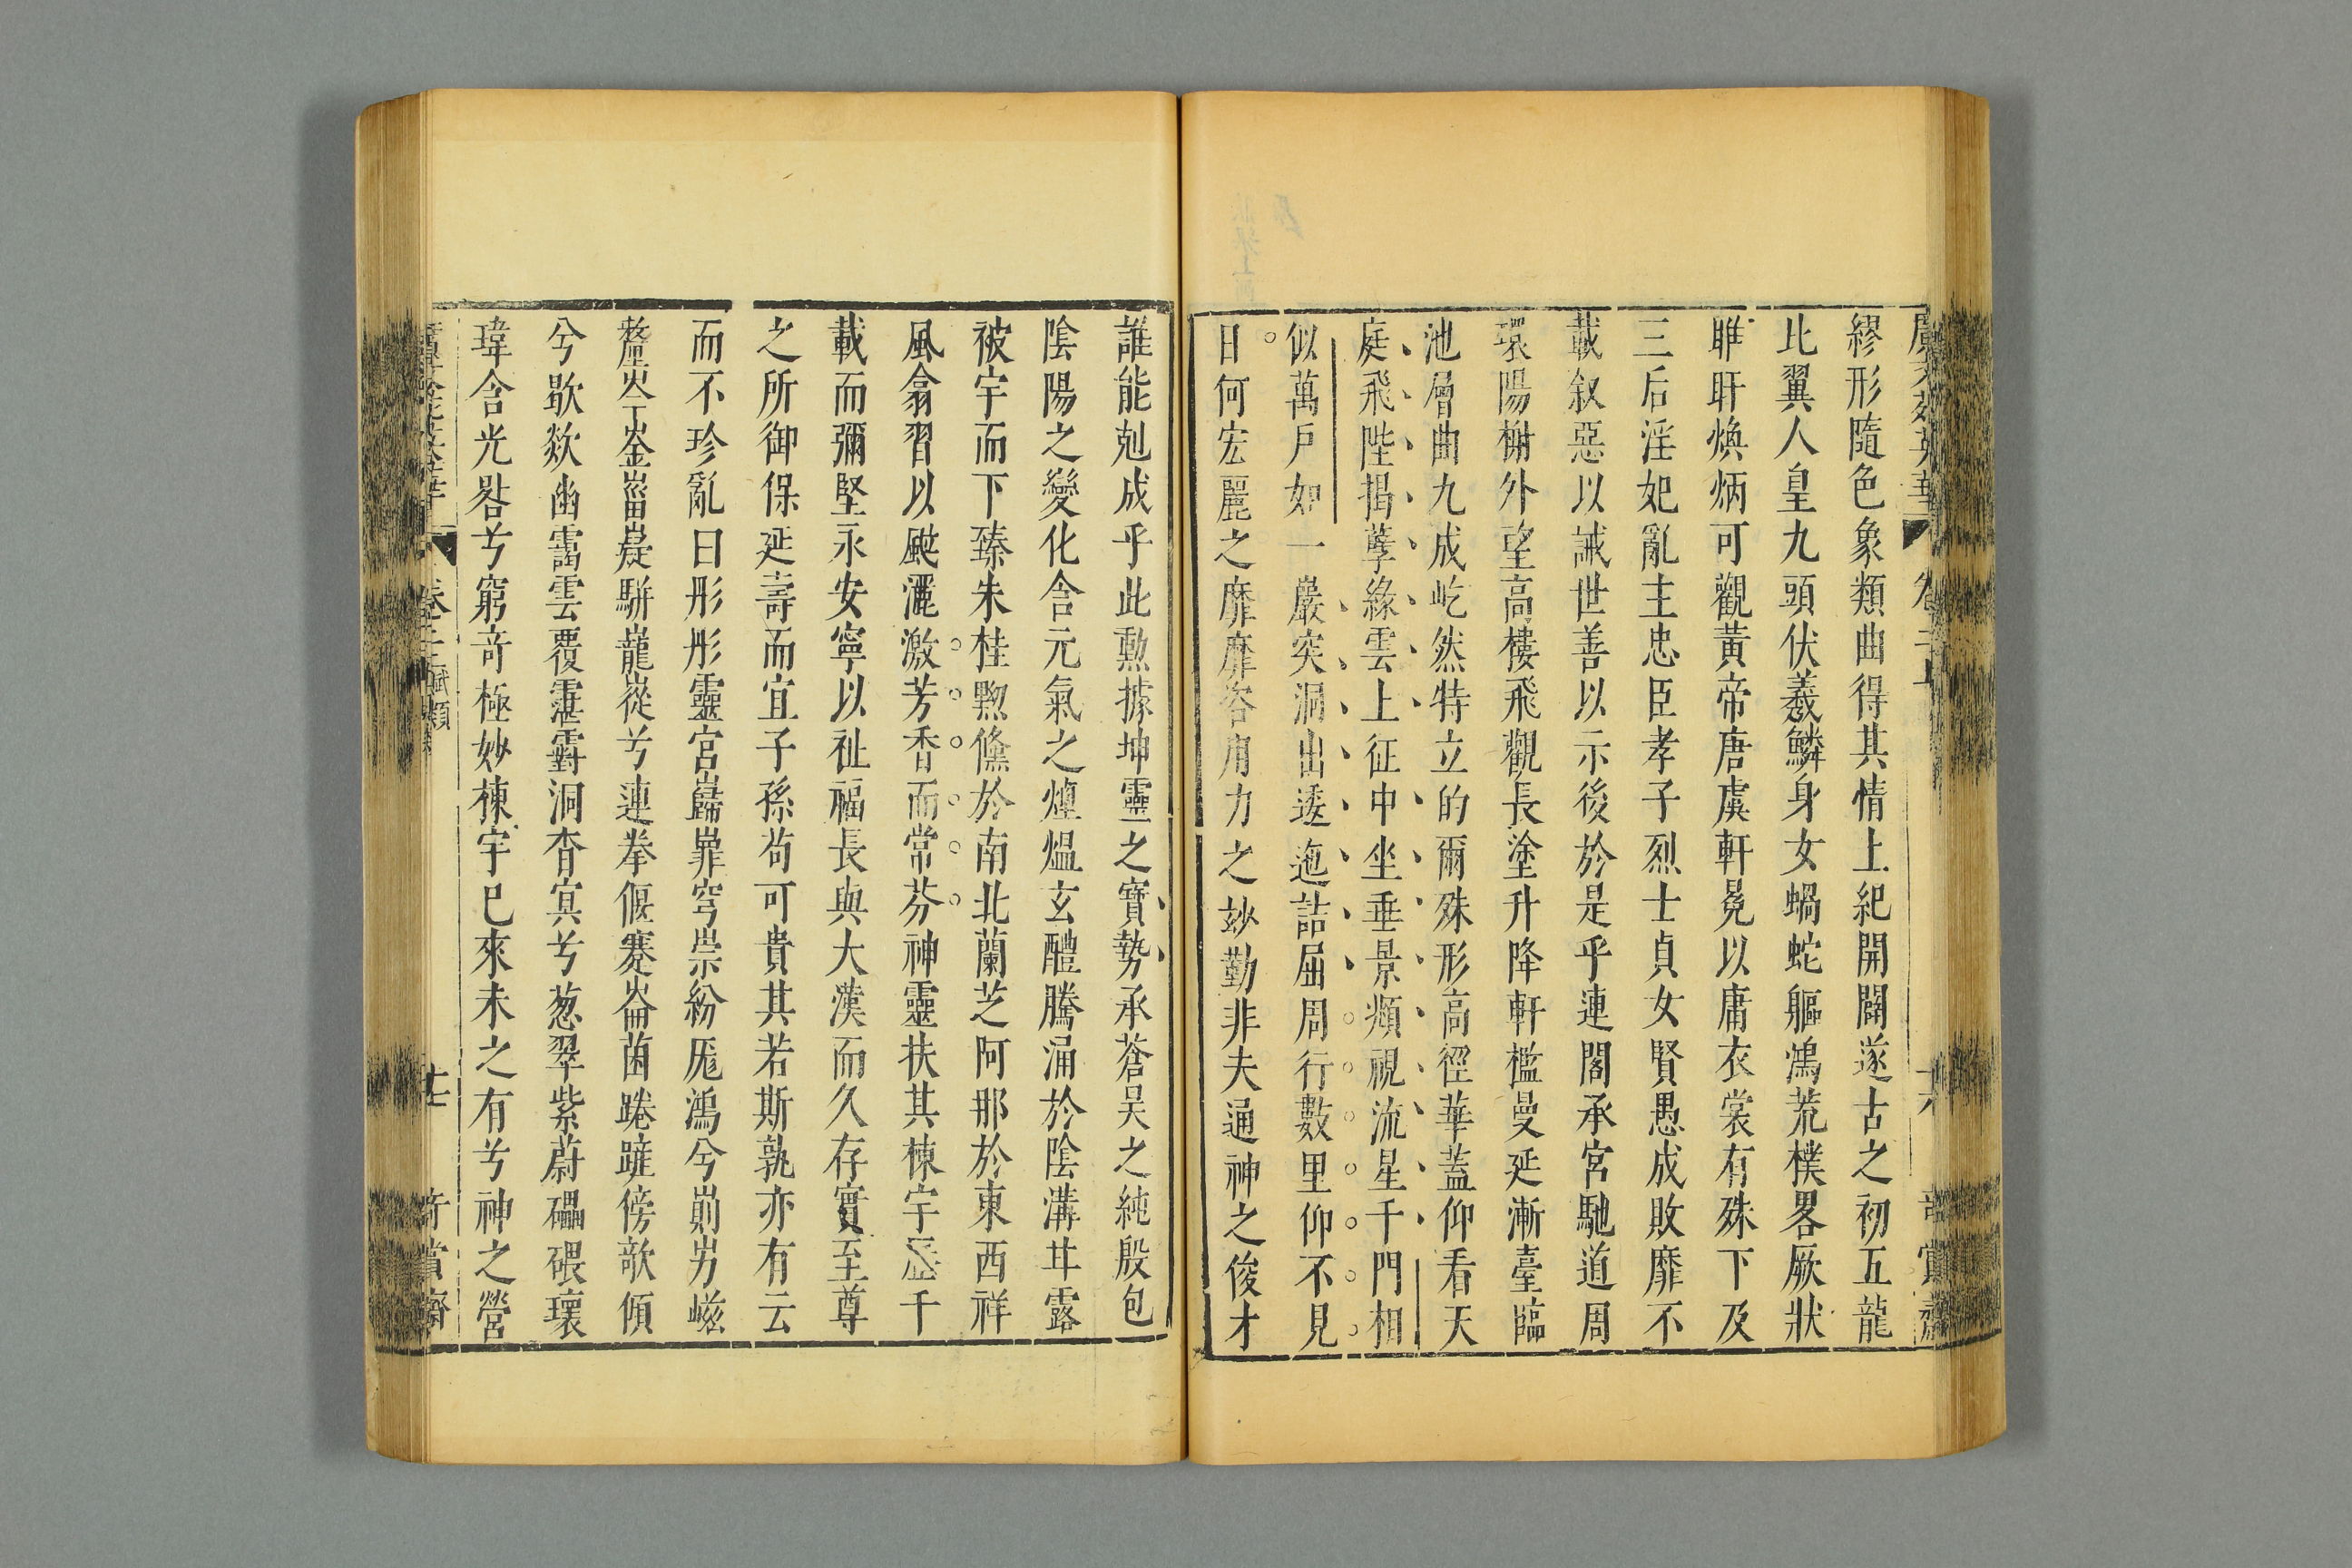 繆形隨色象類曲得其情上紀開闢遂古之初五龍
比翼人皇九頭伏羲鱗身女蝸蛇軀鴻荒樸畧厥狀
睢盱煥炳可觀黃帝唐虞軒冕以庸衣裳有殊下及
三后淫妃亂主忠臣孝子烈士貞女賢愚成敗靡不
載叙惡以誡世善以示後於是乎連閣承宮馳道周
環陽榭外望高樓飛觀長塗升降軒檻曼延漸臺臨
池層曲九成屹然特立的爾殊形高徑華蓋仰看天
庭飛陛揭孽緣雲上征中坐垂景頫視流星千門相
似萬戶如一巖突洞出逶迤詰屈周行數里仰不見
日何宏麗之靡靡咨用力之妙勤非夫通神之俊才
誰能剋成乎此勲據坤靈之寶勢承蒼昊之純殷包
陰陽之變化含元氣之煙熅玄醴騰涌於陰溝甘露
被宇而下臻朱桂黝儵於南北蘭芝阿那於東西祥
風翕習以颬灑激芳香而常芬神靈扶其棟宇歷千
載而彌堅永安寧以祉福長與大漢而久存實至尊
之所御保延壽而宜子孫茍可貴其若斯孰亦有云
而不珍亂曰彤彤靈宮巋嶵穹崇紛厖鴻兮崱屴嵫
釐岑崟崰嶷駢巃嵸兮連拳偃蹇崙菌踡嵼傍欹傾
兮歇欻幽靄雲覆霮䨴洞杳冥兮葱翠紫蔚礧碨瓌
瑋含光晷兮窮竒極妙棟宇已來未之有兮神之營
卷二 賦類
十七
竒賞齋